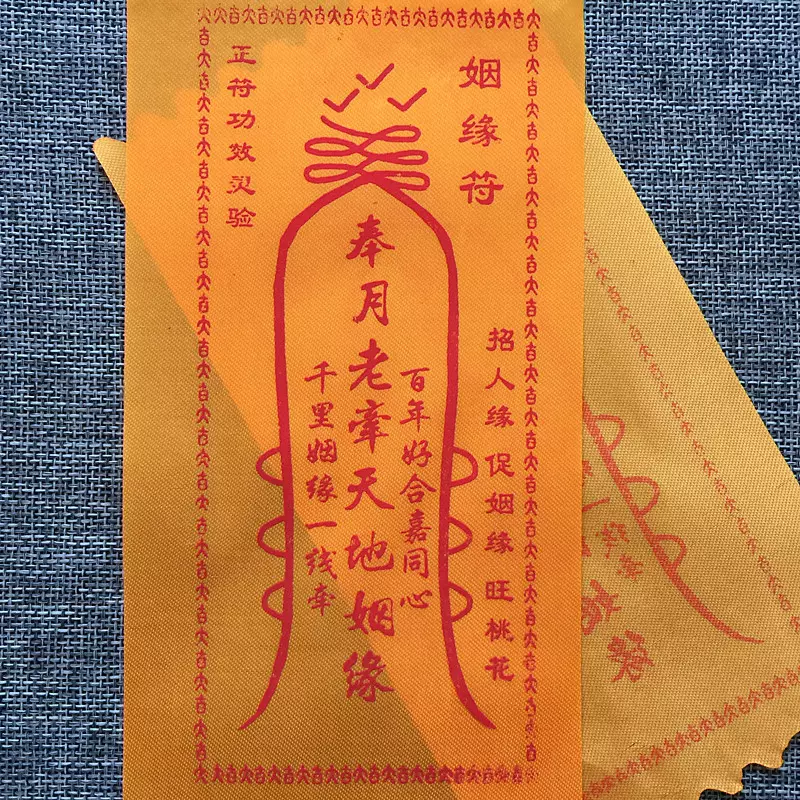 姻缘符
招人缘 促姻缘 旺桃花
百年好合嘉同心
奉月老牵天地姻缘
千里姻缘一线牵
正符功效灵验